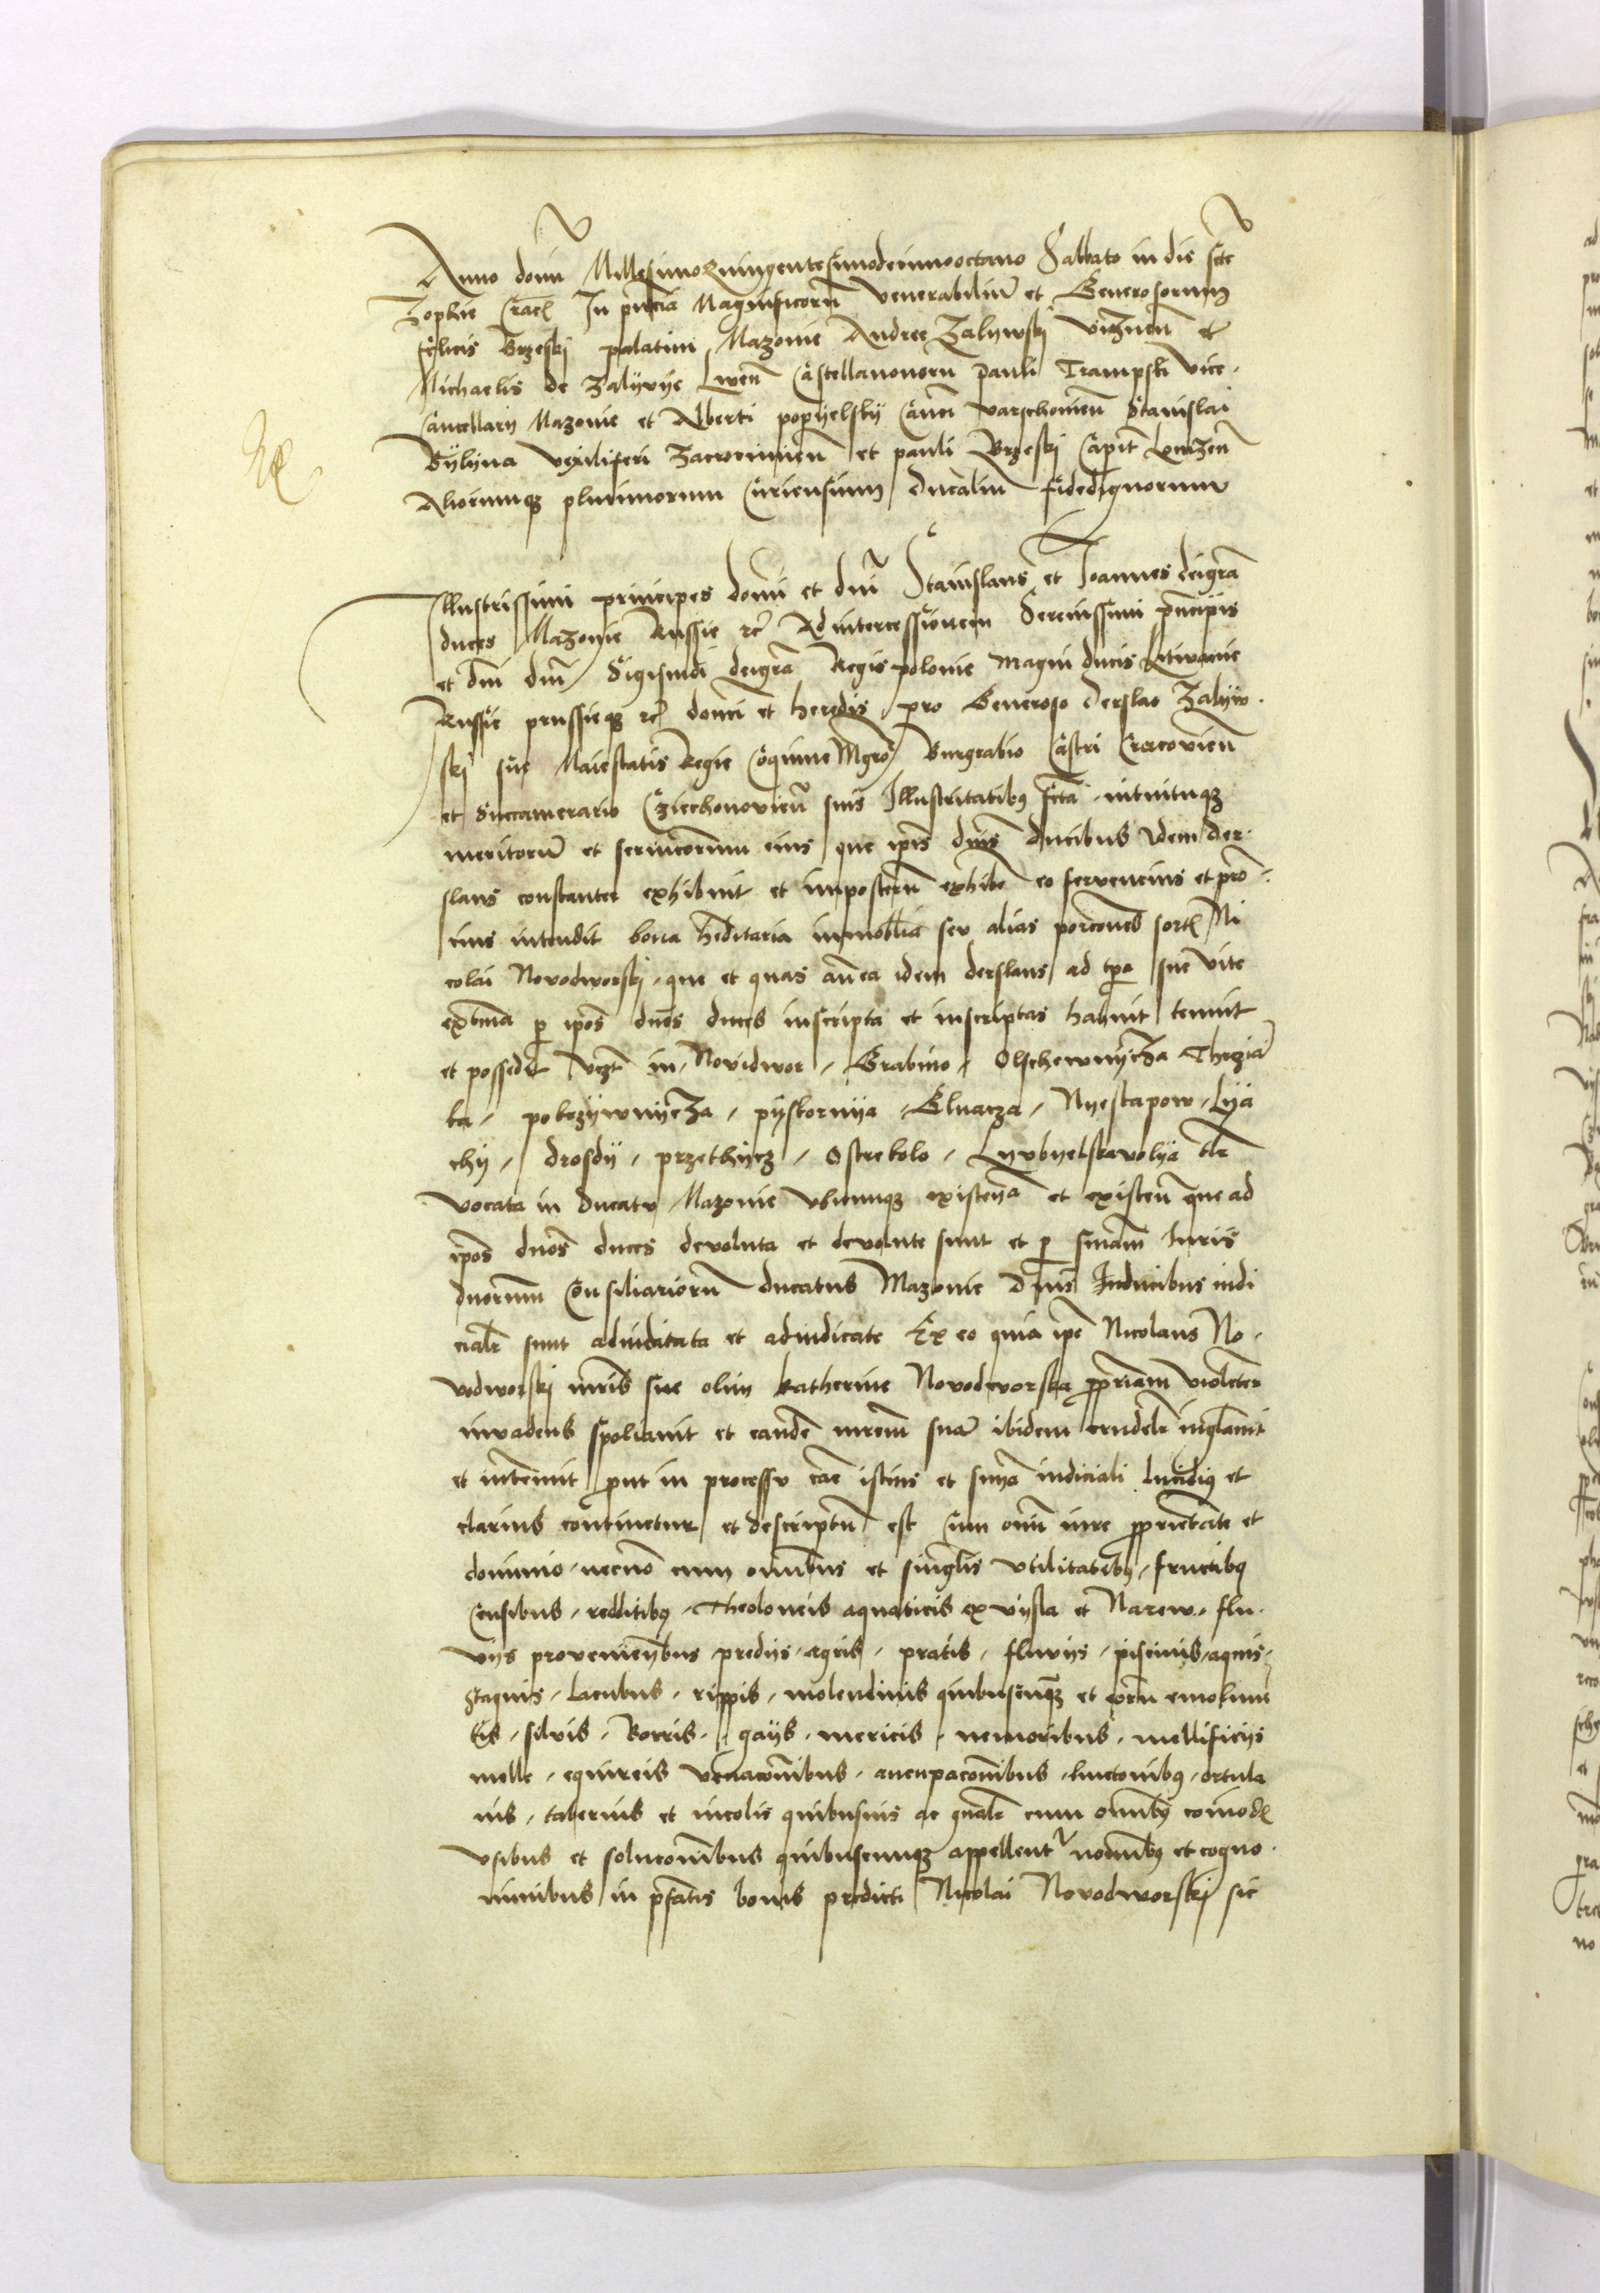 Anno domini Millesimoquingentesimodecimooctavo Sabbato in die scte
Zophie Crast In pntia Magnificorum venerabilium et Generosorum
felicis Brzeski palatini Mazovie Andree Zalywski Viznen et
Michaelis de Zalijvije Lwen Castellanorum Pauli Trampski vice-
Cancellarij Mazovie et Alberti popijelskij Canci varschovien Stanislai
Bijlijna vexiliferi Zacrocimien et pauli Brzeski Capit Lomzen
Aliorumqz plurimorum Curiensium ducalium fidedignorum
Illustrissimi principes domi et dni Stanislaus et Joannes deigra
duces Mazovie Russie rc Ad intercessionem Serenissimi principis
et dni dni Sigismdi deigra Regis polonie magni ducis Litwanie
Russie prussieqz rc domi et heredis pro Generoso Derslao Zalijw-
ski sue Maiestatis Regie Coquine Mgro Burgrabio Castri Cracovien
et Succamerario Cziechonovien suis Illustritatibus fcta intuituqz
meritorum et serviciorum eius que ipis dnis ducibus idem Der-
slaus constanter exhibuit et imposterum exhibe eo fervencius et pro-
cius intendit bona heditaria immobilia seu alias porciones sort Ni
colai Novodworski que et quas antea idem derslaus ad tpa sue vite
extrema p ipos dnos duces inscripta et inscriptas habuit tenuit
et possedit vczt in Novidwor Grabino Olschewnijcza Thrzcia
ka pokrzijwnijcza pijskornija Gluacza Nyestapow Lija
chij drosdij przethijcz Ostrekolo Lyvbyelskavolija dte
vocata in ducatu Mazovie ubicunqz existena et existen que ad
ipos dnos duces devoluta et devolute sunt et p sniam Iuris
dnorum Consiliariorum ducatus Mazovie Dnis Inducibus iudi
cialr sunt adiudicata et adiudicate Ex eo quia ipe Nicolaus No-
vodworski mris sue olim Katherine Novodworska ppriam violenter
invadens spoliavit et eande mrem sua ibidem crudelr iuglavit
et interemit put in processu cae istius et snia iudiciali lucidius et
clarius continetur et descriptum est Cum omi iure pprietate et
dominio necno cum omibus et singulis utilitatibus fructibus
Censibus redditibus Theoloneis aquaticis ex vijsla et Narew flu-
vijs provenientibus predijs agris pratis fluvijs piscinis aquis
stagnis Lacubus rippis molendinis quibuscunqz et eorum emolumen
tis silvis Borris gaijs mericis nemoribus mellificijs
melle equireis venacoibus aucupacoibus kmetonibus ortula
nis tabernis et incolis quibusvis ac gnalr cum omibus comod
usibus et solucoibus quibuscunqz appellentur noibus et cogno-
minibus in pfatis bonis predicti Nicolai Novodworski sic